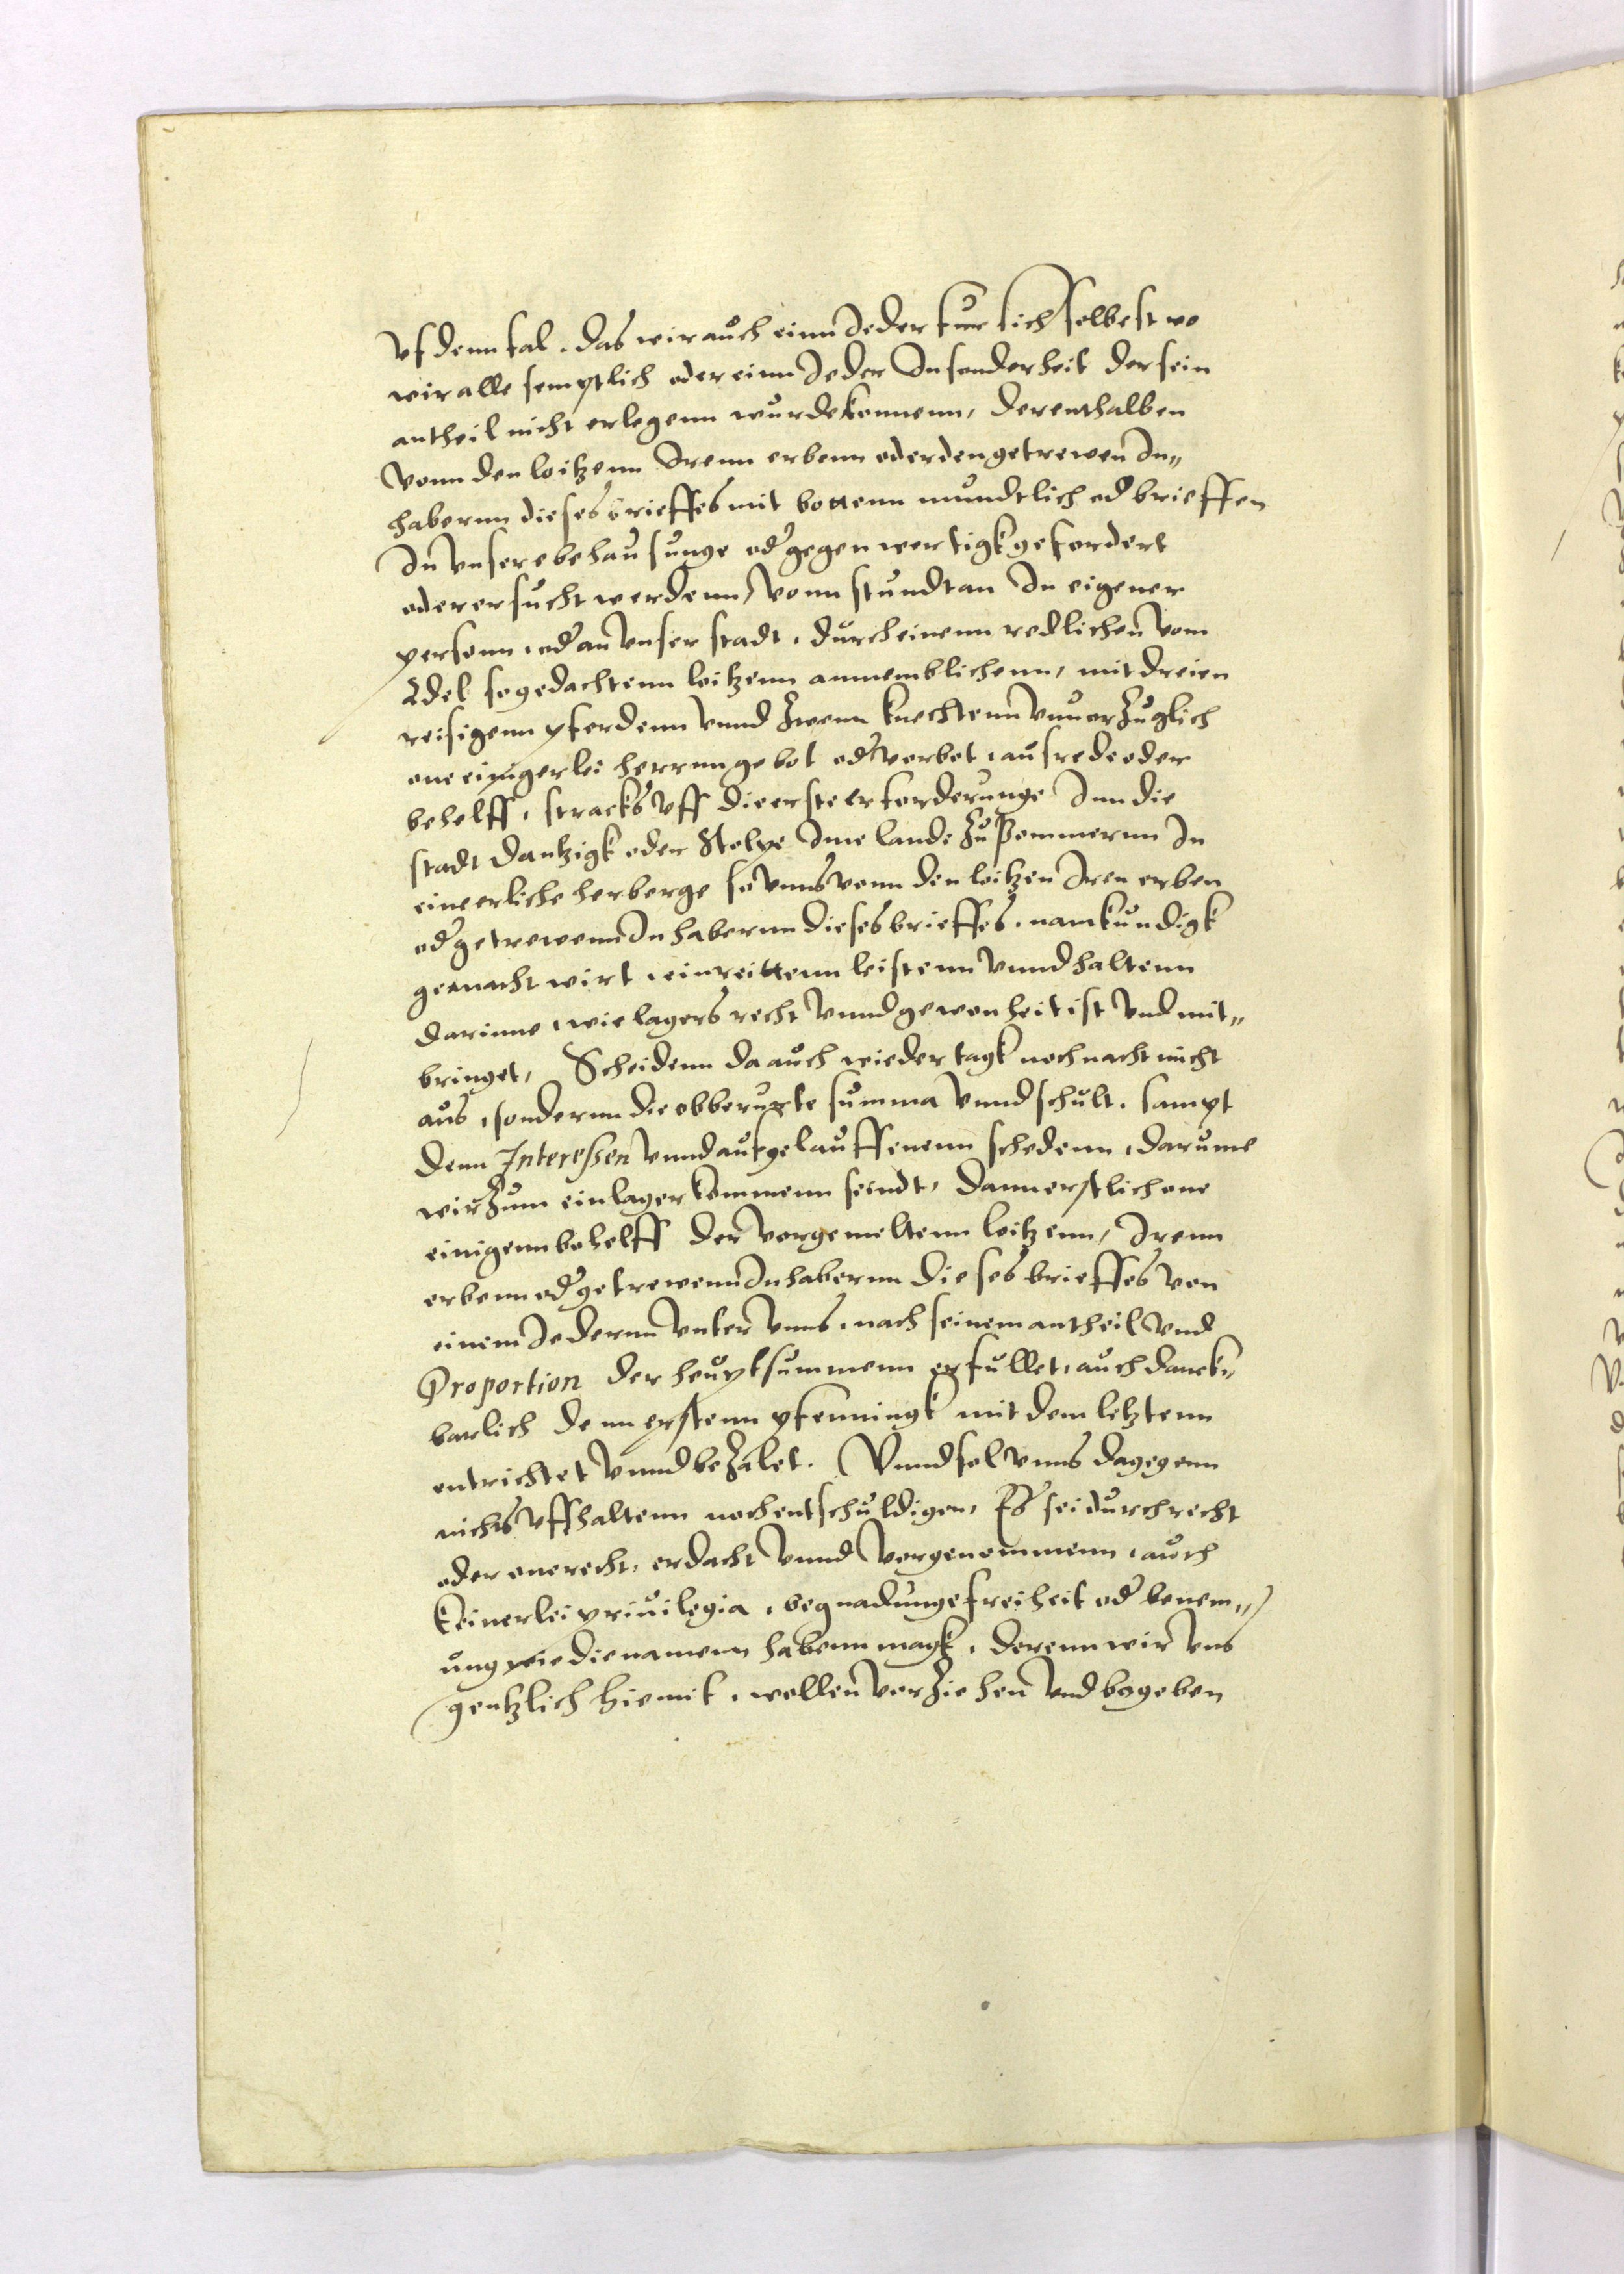 vf denn fal. das wir auch einn Jeder fur sich selbest wo
wir alle semptlich oder einn Jeder Jnsonderheit der sein
antheil nicht erlegenn wurde konnenn, derenthalben
vonn den loitzenn Jrenn erbenn oder den getrewen Jn„
habernn dieses brieffes mit bottenn mundtlich od brieffen
Jn vnsere behausunge od gegenwertigk gefordert
oder ersucht werdenn, vonn stundt an Jn eigener
personn, od an vnser stadt, durch einenn redlichen vom
Adel so gedachtenn loitzenn annemblichenn, mit dreien
reisigenn pferdenn vnnd zwenn knechtenn vnuerzuglich
one einigerlei herrnn gebot od verbot, ausrede oder
behelff, stracks vff die erste erforderunge Jnn die
stadt dantzigk oder Stolpe Jme lande zu Pommernn Jn
eine erliche herberge so vnns vonn den loitzen Jren erben
od getrewenn Jnhabernn dieses brieffes, namkundigk
gemacht wirt, einreittenn leistenn vnnd haltenn
darinne, wie lagers recht vnnd gewonheit ist vnd mit„
bringet, Scheidenn da auch wieder tagk noch nacht nicht
aus, sondernn die obberurte summa vnnd schult, sampt
denn Interessen vnnd aufgelauffenenn schedenn, darume
wir zum einlager kommenn seindt, dann erstlich one
einigenn behelff der vorgemeltenn loitzenn, Jrenn
erbenn od getrewenn Jnhabernn dieses brieffes von
einem Jedernn vnter vnns, nach seinem antheil vnd
Proportion der heuptsummenn erfullet, auch danck„
barlich denn erstenn pfenningk mit dem letztenn
entrichtet vnnd bezalet. Vnnd sol vnns dagegenn
nichts vffhaltenn noch entschuldigen, Es sei durch recht
oder one recht, erdacht vnnd vorgenommenn, auch
keinerlei priuilegia, begnadunge freiheit od benem„
ung wie die namenn habenn magk, derenn wir vns
gentzlich hiemit, wollen vorziehen vnd begeben